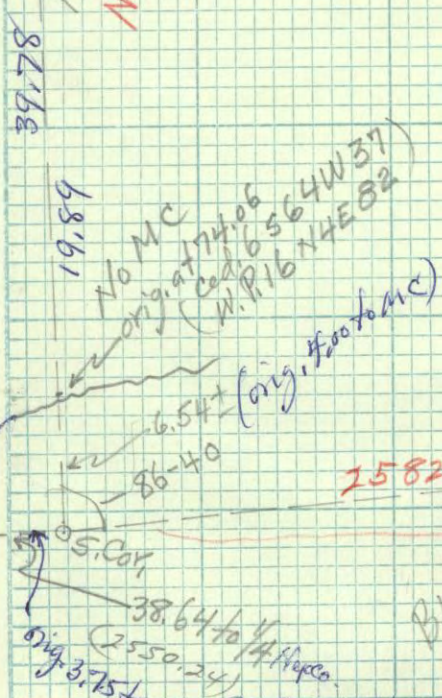 39.78
19.89
No MC
orig. at 74.06
(ced. 6 S64W37)
(W.P. 16 N4E82
(orig. 4.00 to MC)
6.54±
86-40
2582
S. Cor,
38.64 to 1/4
(2550.24)
orig. 3.75±